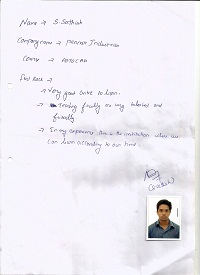 Name → S. Sathish
Company name → pennar Industries
Course → AUTOCAD
Feed back →
→ Very good Institute to learn.
→ Training faculty are very talented and
friendly
→ In my experience this is the institution where we
can learn according to our time.